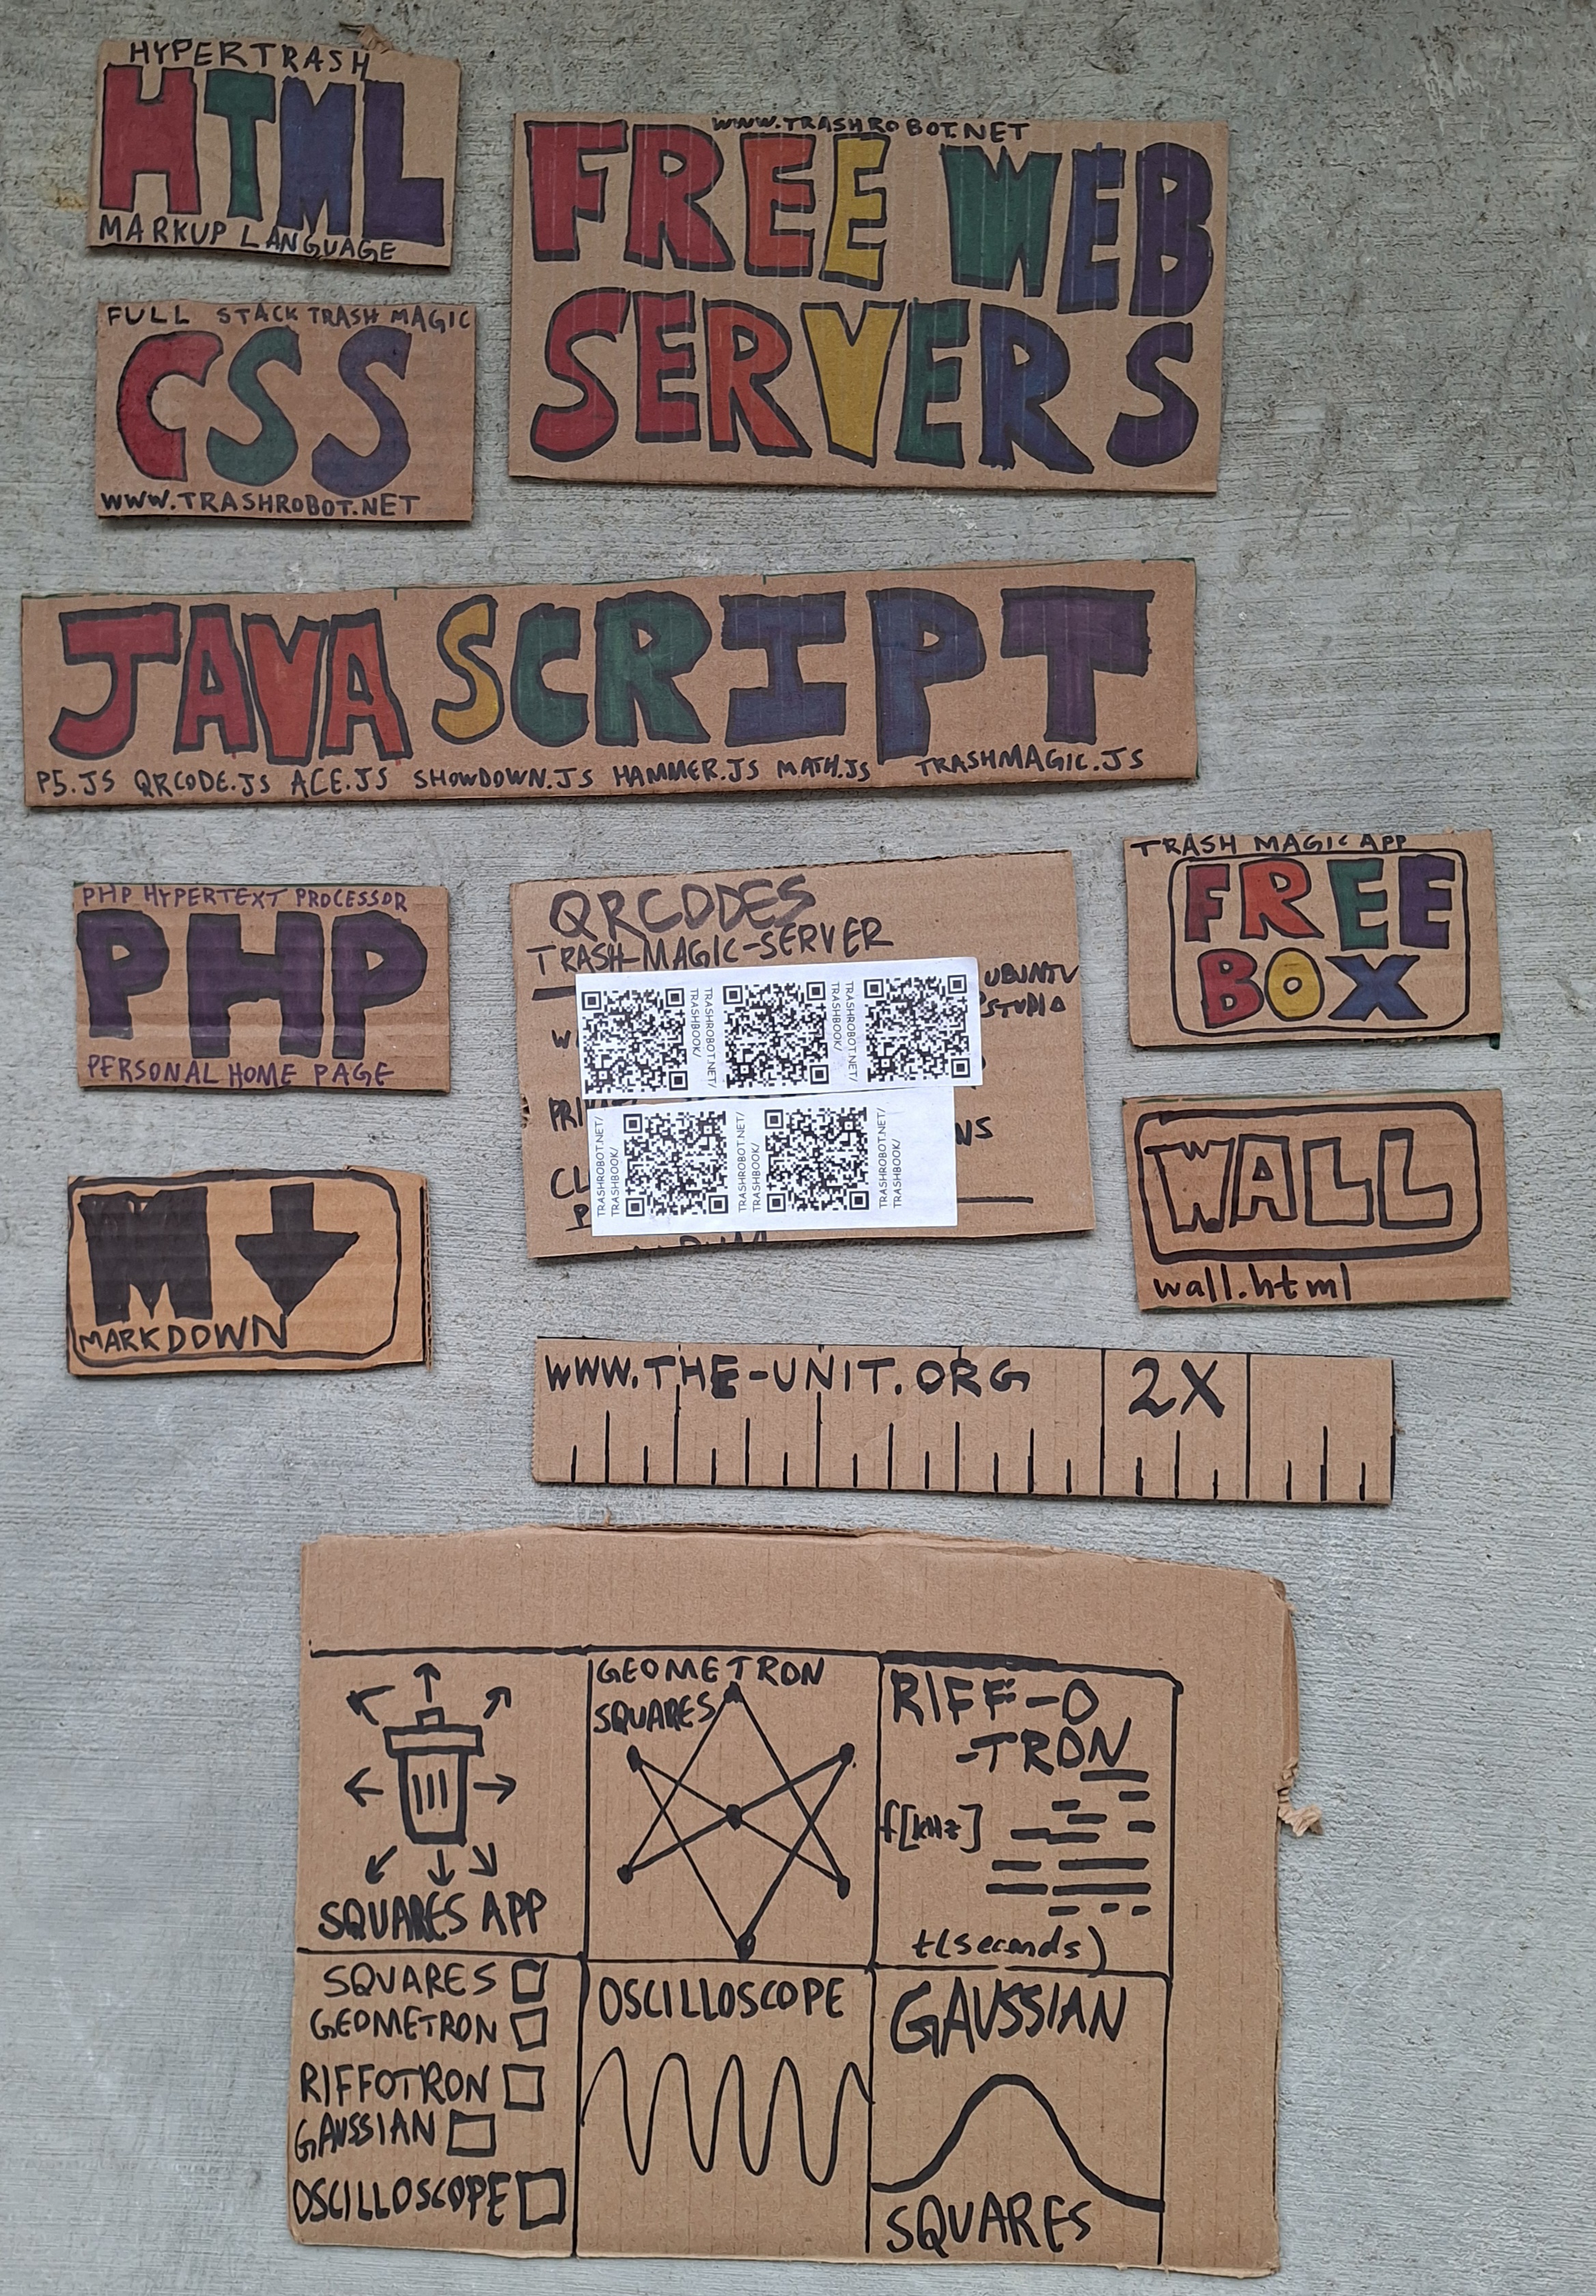 HYPERTRASH
HTML
MARKUP LANGUAGE
WWW.TRASHROBOT.NET
FREE WEB
SERVERS
FULL STACK TRASH MAGIC
CSS
WWW.TRASHROBOT.NET
JAVASCRIPT
P5.JS QRCODE.JS ACE.JS SHOWDOWN.JS HAMMER.JS MATH.JS TRASHMAGIC.JS
PHP HYPERTEXT PROCESSOR
PHP
PERSONAL HOME PAGE
QRCODES
TRASH-MAGIC-SERVER
UBUNTU
STUDIO
TRASHROBOT.NET/
TRASHBOOK/
TRASHROBOT.NET/
TRASHBOOK/
TRASHROBOT.NET/
TRASHBOOK/
TRASHROBOT.NET/
TRASHBOOK/
TRASHROBOT.NET/
TRASHBOOK/
TRASH MAGIC APP
FREE
BOX
WALL
wall.html
M
MARKDOWN
WWW.THE-UNIT.ORG 2X
SQUARES APP
GEOMETRON
SQUARES
RIFF-O
-TRON
f[kHz]
t(seconds)
SQUARES
GEOMETRON
RIFFOTRON
GAUSSIAN
OSCILLOSCOPE
OSCILLOSCOPE
GAUSSIAN
SQUARES